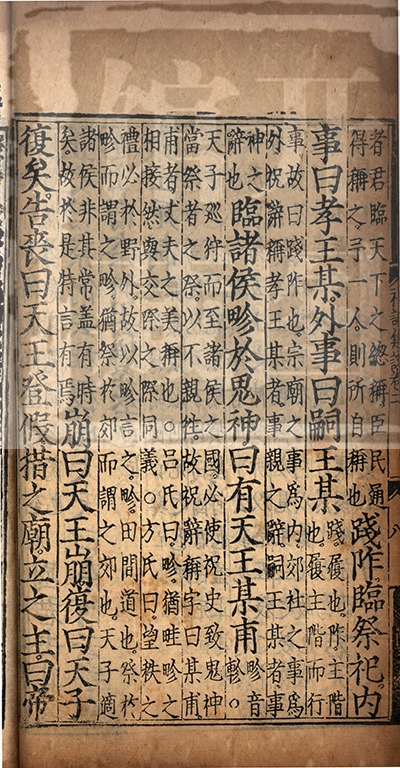 者君臨天下之總稱臣民通
得稱之予一人則所自稱也
踐阼臨祭祀內
事曰孝王某外事曰嗣王某
踐履也阼主階
也履主階而行
事故曰踐阼也宗廟之事為內郊社之事為
外祝辭稱孝王某者事親之辭嗣王某者事
神之
辭也
臨諸侯畛於鬼神曰有天王某甫
畛音
軫○
天子巡狩而至諸侯之國必使祝史致鬼神
當祭者之祭以不親往故祝辭稱字曰某甫
甫者丈夫之美稱也○呂氏曰畛猶畦畛之
相接然與交際之際同義○方氏曰望秩之
禮必於野外故以畛言之畛田間道也祭於
畛而謂之畛猶祭於郊而謂之郊也天子適
諸侯非其常蓋有時
矣故於是特言有焉
崩曰天王崩復曰天子
復矣告喪曰天王登假措之廟立之主曰帝